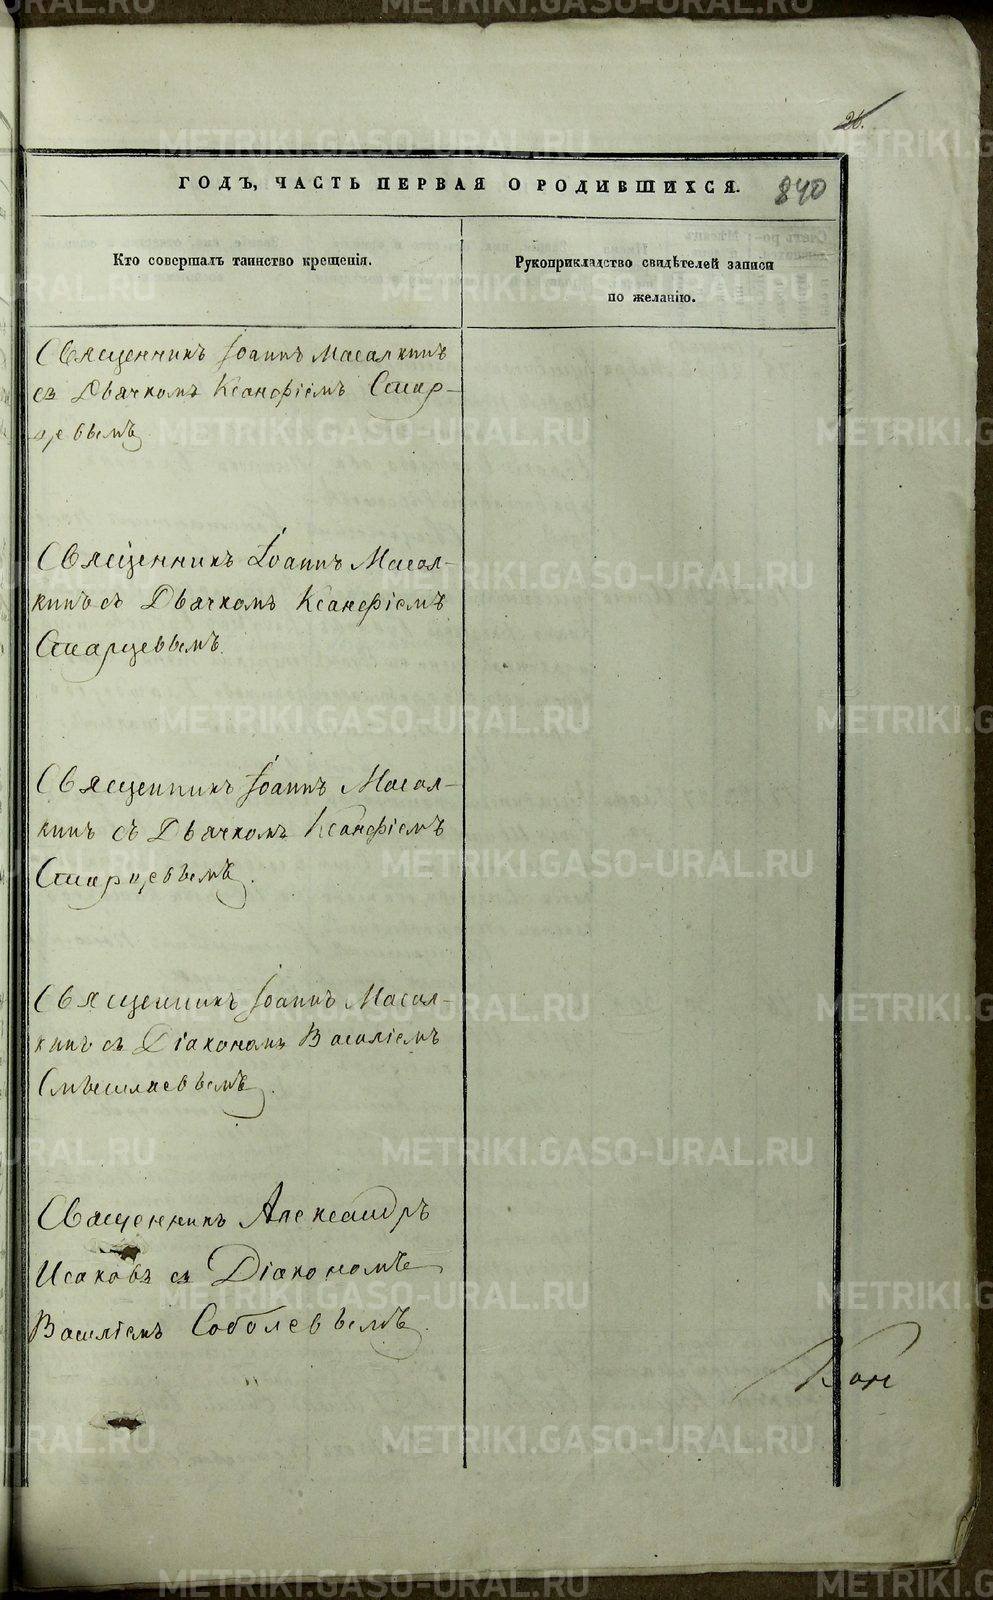 26.
ГОДЪ, ЧАСТЬ ПЕРВАЯ О РОДИВШИХСЯ.
840
Кто совершалъ таинство крещенія.
Рукоприкладство свидѣтелей записи
по желанію.
Священникъ Іоаннъ Масалкинъ
съ Дьячкомъ Ксанфіемъ Стар-
цевымъ
Священникъ Іоаннъ Масал-
кинъ съ Дьячкомъ Ксанфіемъ
Старцевымъ.
Священникъ Іоаннъ Масал-
кинъ съ Дьячкомъ Ксанфіемъ
Старцевымъ.
Священникъ Іоаннъ Масал-
кинъ съ Діакономъ Василіемъ
Священникъ Александръ
Исаковъ съ Діакономъ
Василіемъ Соболевымъ.
METRIKI.GASO-URAL.RU